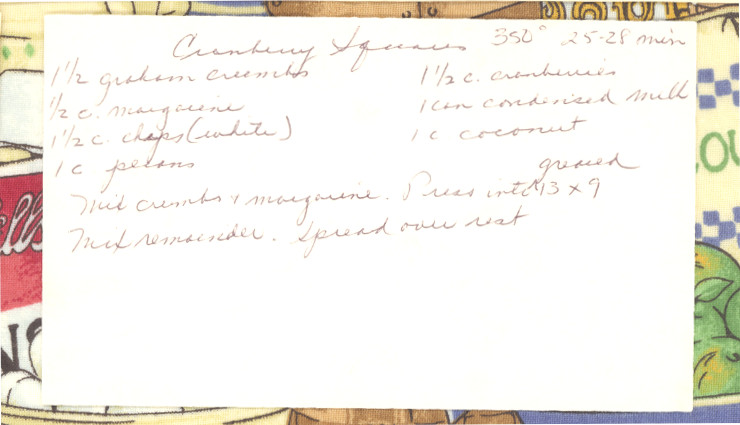 Cranberry Squares 350° 25-28 min
1 1/2 graham crumbs 1 1/2 c. cranberries
1/2 c. margarine 1 can condensed milk
1 1/2 c. chips (white) 1 c coconut
1 c pecans
greased
Mix crumbs + margarine. Press into 13 x 9
Mix remainder. Spread over rest
OU
lls